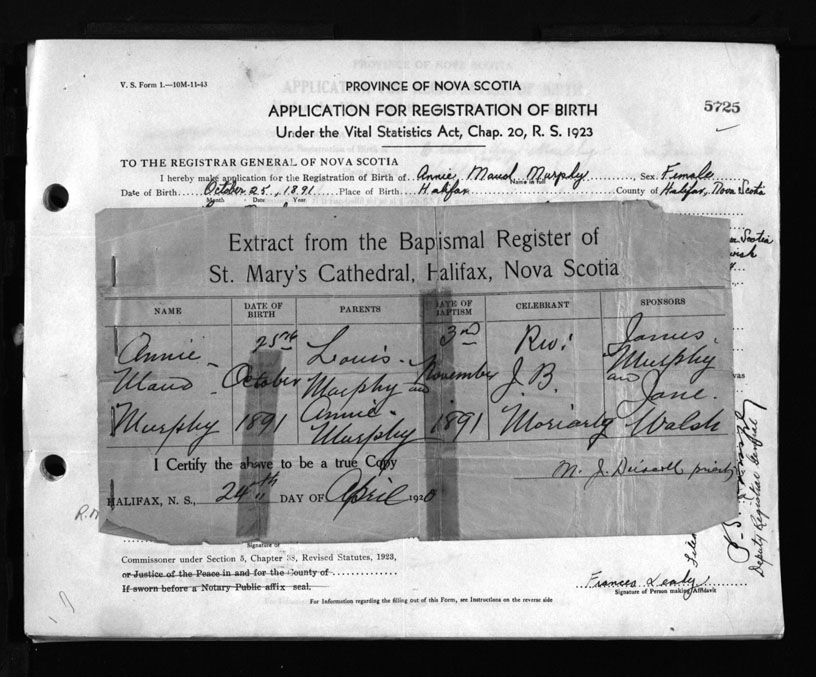 V. S. Form 1.—10M-11-43
PROVINCE OF NOVA SCOTIA
APPLICATION FOR REGISTRATION OF BIRTH
5725
Under the Vital Statistics Act, Chap. 20, R. S. 1923
TO THE REGISTRAR GENERAL OF NOVA SCOTIA
I hereby make application for the Registration of Birth of Annie Maud Murphy, Sex Female
Name in full
Date of Birth October 25, 1891 Place of Birth Halifax County of Halifax, Nova Scotia
Month Date Year
Extract from the Bapismal Register of
St. Mary's Cathedral, Halifax, Nova Scotia
NAME DATE OF BIRTH PARENTS DATE OF BAPTISM CELEBRANT SPONSORS
Annie 25th Louis 3rd Rev: James
Maud October Murphy and November J. B. Murphy and Jane
Murphy 1891 Annie Murphy 1891 Moriarty Walsh
I Certify the above to be a true Copy
M. J. Driscoll priest
HALIFAX, N. S., 24th DAY OF April 1920
Signature of
Commissioner under Section 5, Chapter 38, Revised Statutes, 1923,
or Justice of the Peace in and for the County of
If sworn before a Notary Public affix seal.
Frances Leahy
Signature of Person making Affidavit
For Information regarding the filling out of this Form, see Instructions on the reverse side
Deputy Registrar